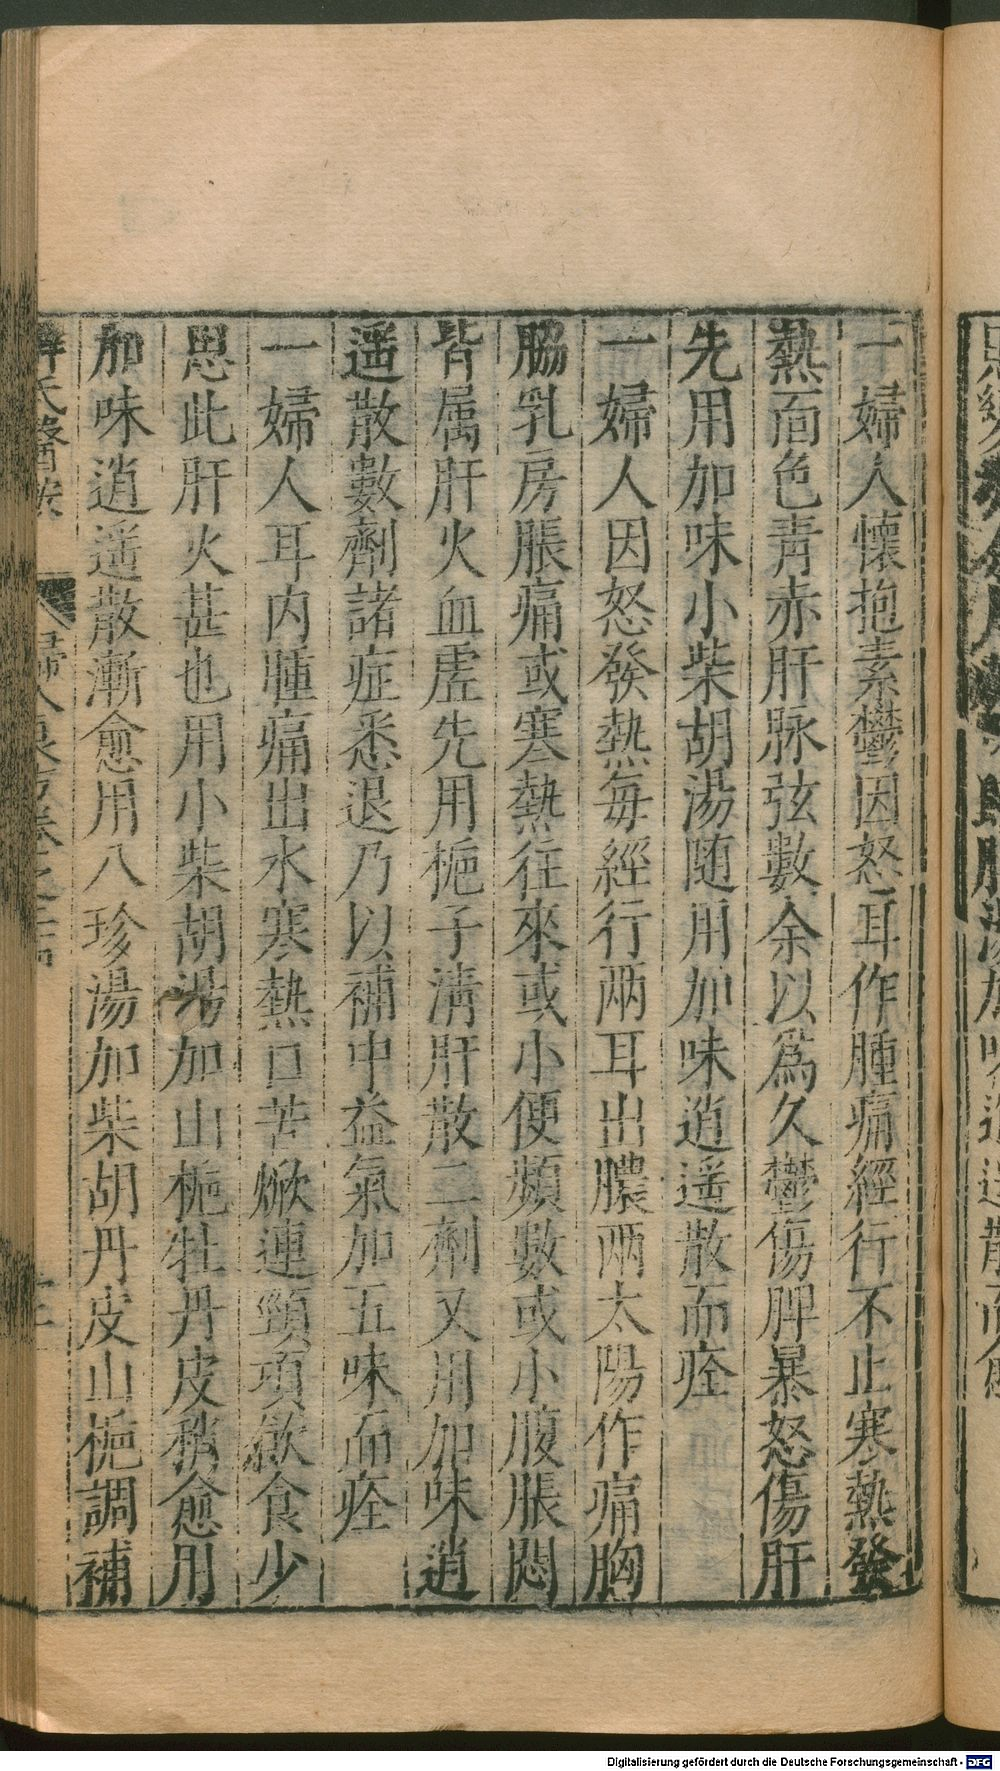 一婦人懷抱素鬱因怒耳作腫痛經行不止寒熱發
熱面色靑赤肝脉弦數余以爲久鬱傷脾暴怒傷肝
先用加味小柴胡湯随用加味逍遥散而痊
一婦人因怒發熱每經行兩耳出膿兩太陽作痛胸
脇乳房脹痛或寒熱往來或小便頻數或小腹脹悶
皆属肝火血虛先用梔子淸肝散二劑又用加味逍
遥散數劑諸症悉退乃以補中益氣加五味而痊
一婦人耳内腫痛出水寒熱口苦焮連頸項飲食少
思此肝火甚也用小柴胡湯加山梔牡丹皮稍愈用
加味逍遥散漸愈用八珍湯加柴胡丹皮山梔調補
薛氏醫案 婦人良方卷之二十四
Digitalisierung gefördert durch die Deutsche Forschungsgemeinschaft - DFG